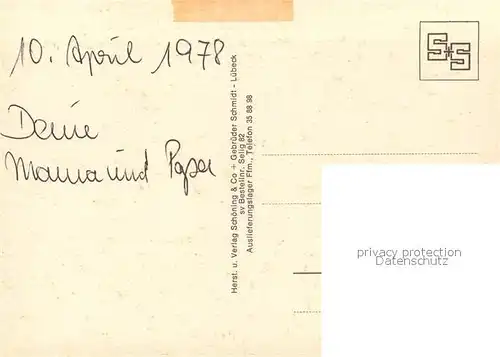 10. April 1978
Deine
Mama und Papa
Herst. u. Verlag Schöning & Co + Gebrüder Schmidt - Lübeck
sv Bestellnr. Selig 82
Auslieferungslager Ffm., Telefon 35 88 98
S+S
privacy protection
Datenschutz